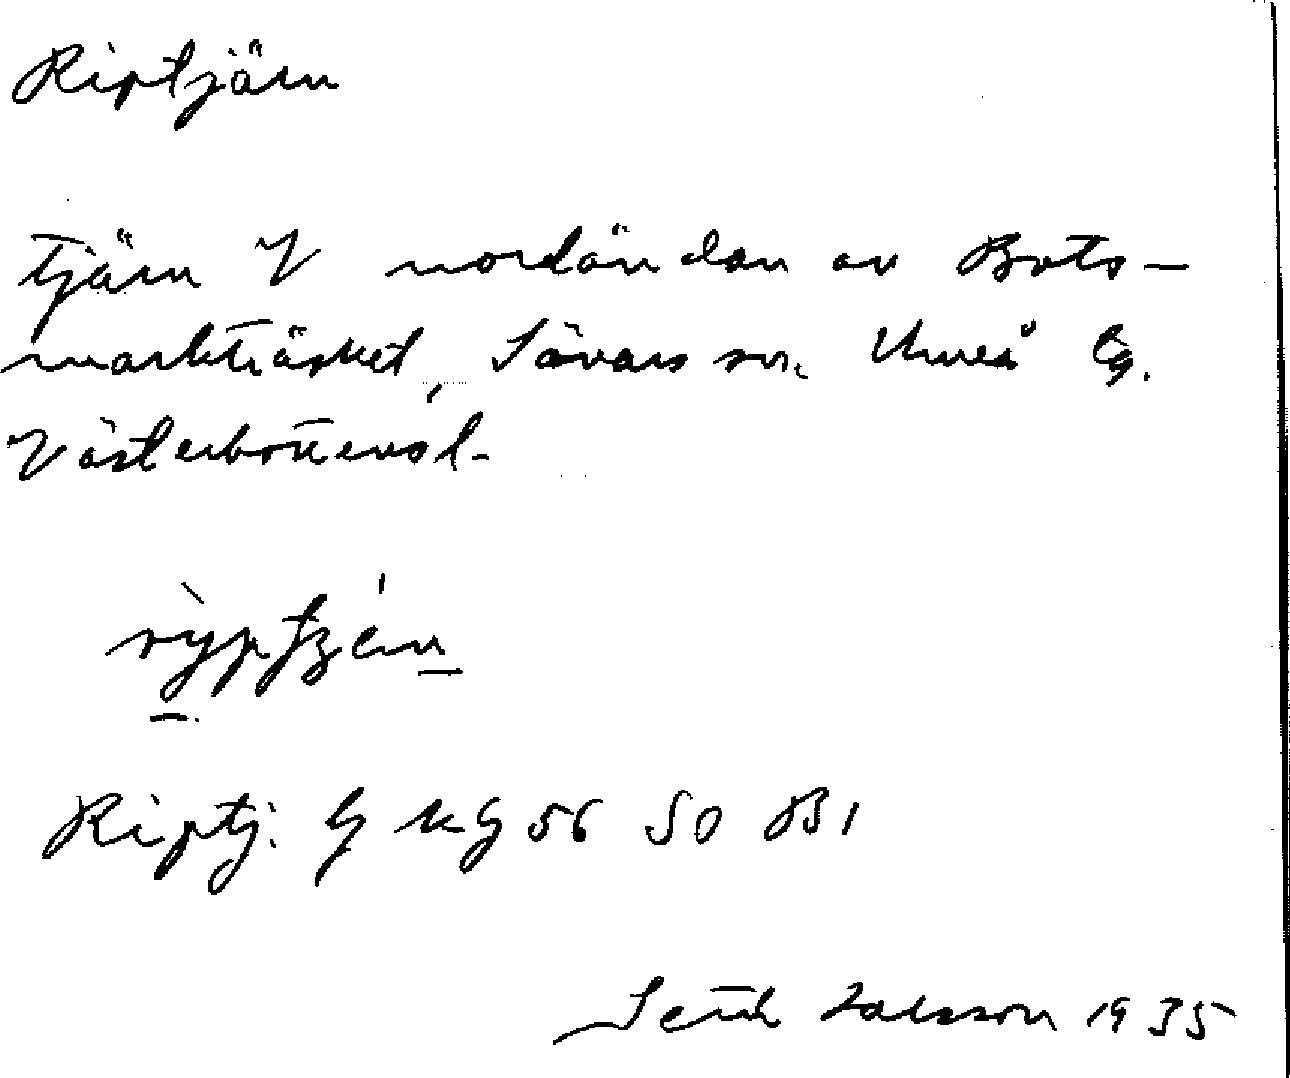 Riptjärn
tjärn V nordändan av Bots-
markträsket, Sävars sn. Umeå lg.
Västerbottensl-
Riptj. G kg 56 SO B1
Seth Jansson 1935